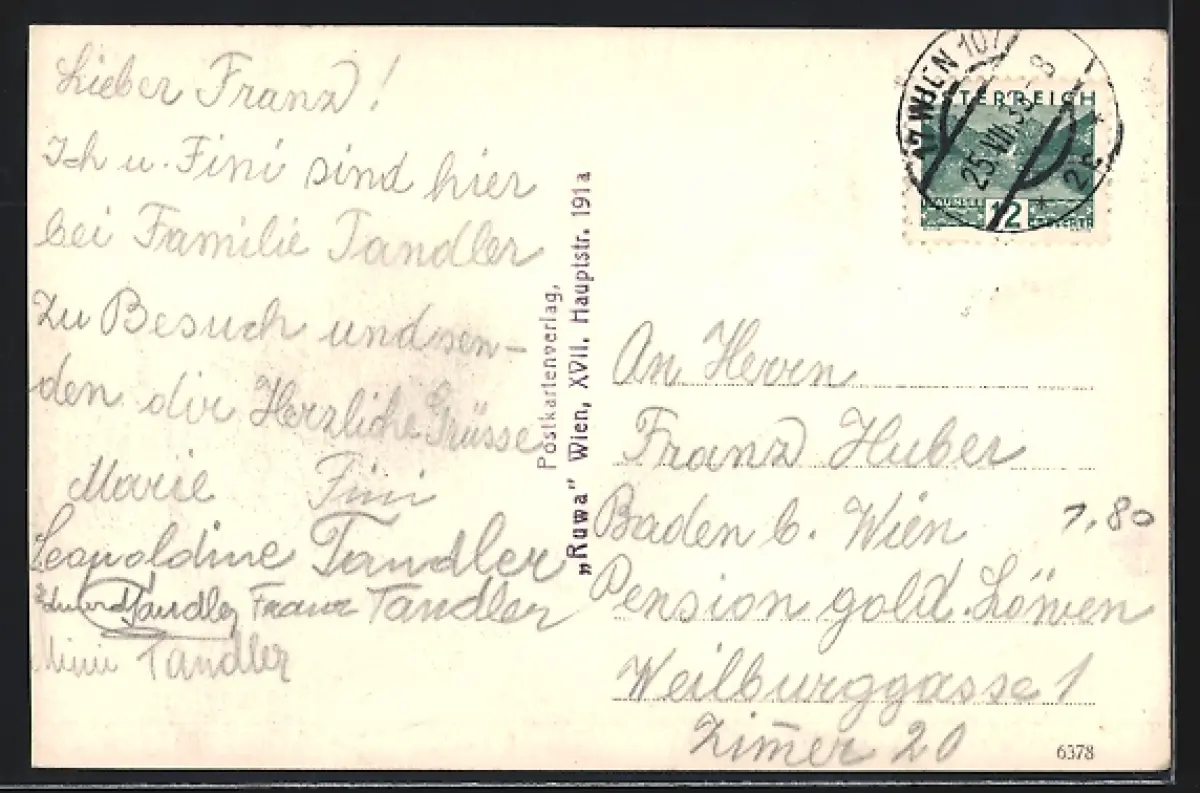 Lieber Franz!
Ich u. Fini sind hier
bei Familie Tandler
zu Besuch und sen-
den dir Herzliche Grüsse
Marie Fini
Leopoldine Tandler
Eduard Tandler Franz Tandler
Mimi Tandler
Postkartenverlag,
„Ruwa" Wien, XVII. Hauptstr. 191a
WIEN 107
25.VII.33-8
* 2c *
ÖSTERREICH
TRAUNSEE
12
An Herrn
Franz Huber
Baden b. Wien
1,80
Pension gold. Löwen
Weilburggasse 1
Zim̅er 20
6378